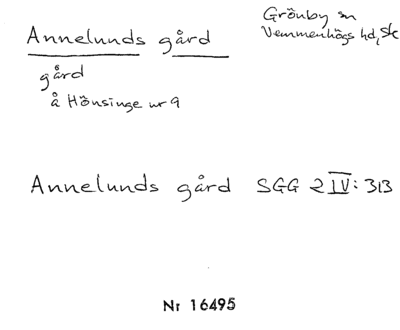 Annelunds gård
Grönby sn
Vemmenhögs hd, Sk
gård
å Hönsinge nr 9
Annelunds gård SGG 2 IV: 313
Nr 16495